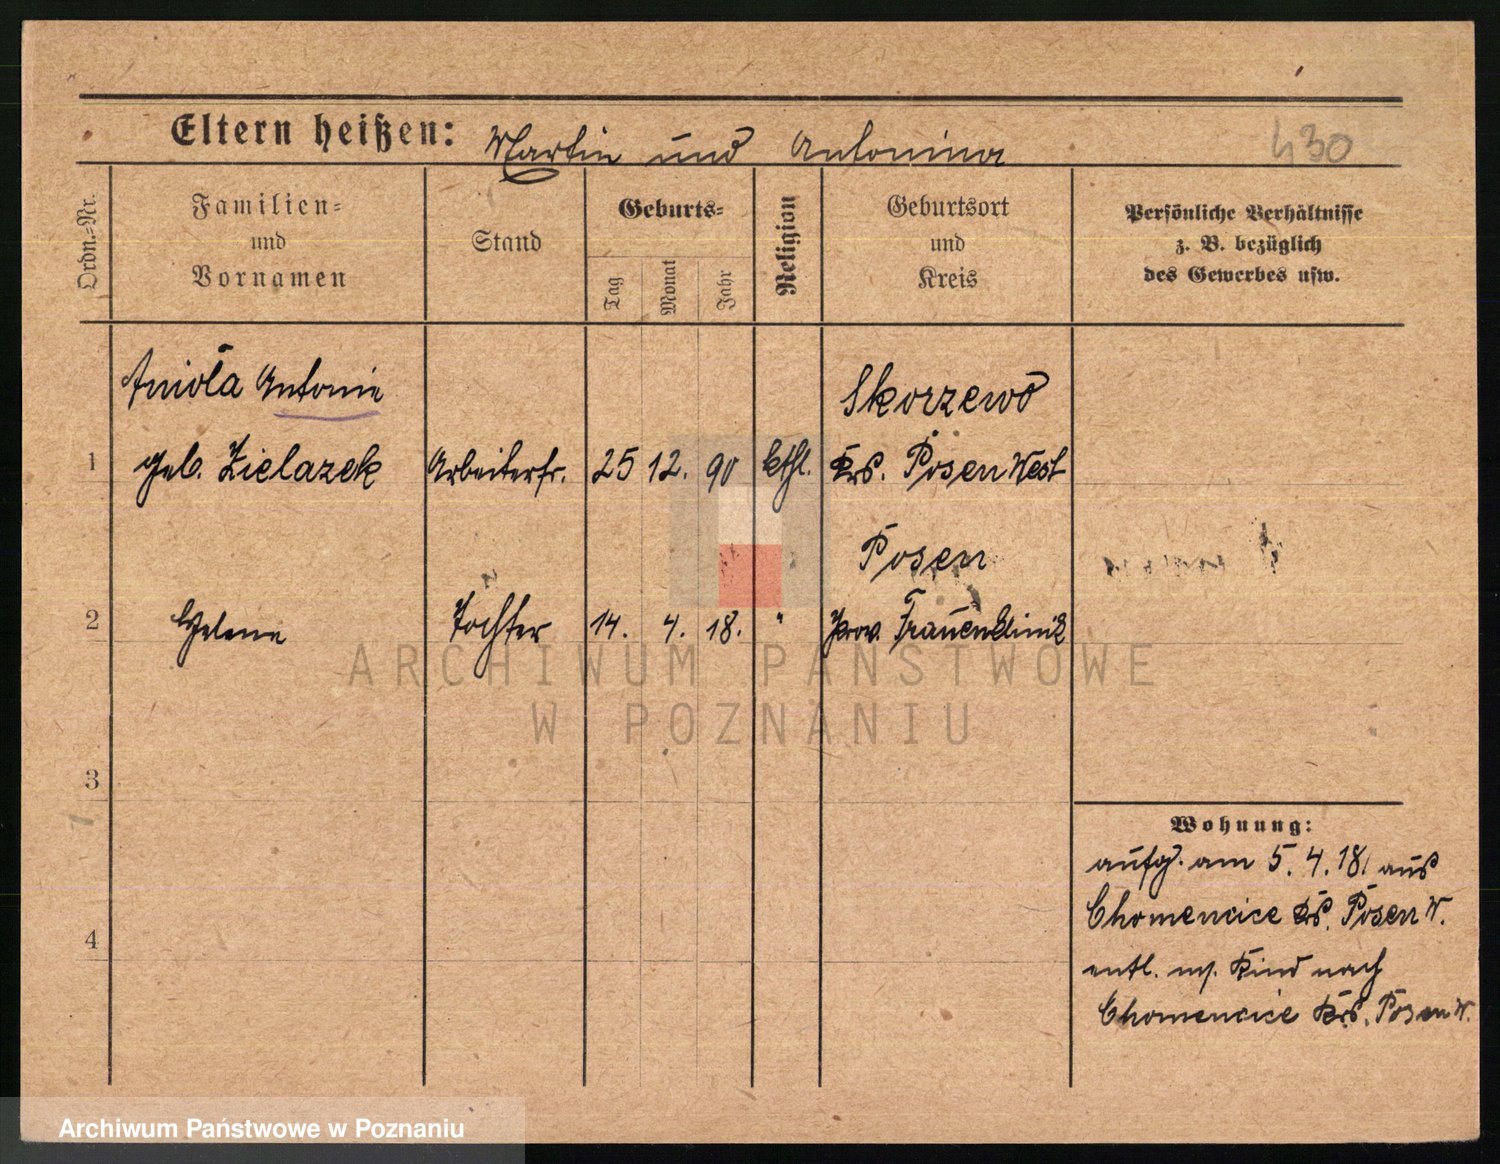 Eltern heißen: Martin und Antonina
430
Ordn.-Nr.
Familien-
und
Vornamen
Stand
Geburts-
Tag
Monat
Jahr
Religion
Geburtsort
und
Kreis
Persönliche Verhältnisse
z. B. bezüglich
des Gewerbes usw.
Anioła Antonie
Skorzewo
1 geb. Zielazek Arbeiterfr. 25 12. 90 kthl. Krs. Posen West
Posen
2 Helene Tochter 14. 4. 18. " Prov. Frauenklinik
ARCHIWUM PAŃSTWOWE
W POZNANIU
3
Wohnung:
aufg. am 5. 4. 18. aus
Chomencice Krs. Posen W.
4
entl. m. Kind nach
Chomencice Krs. Posen W.
Archiwum Państwowe w Poznaniu